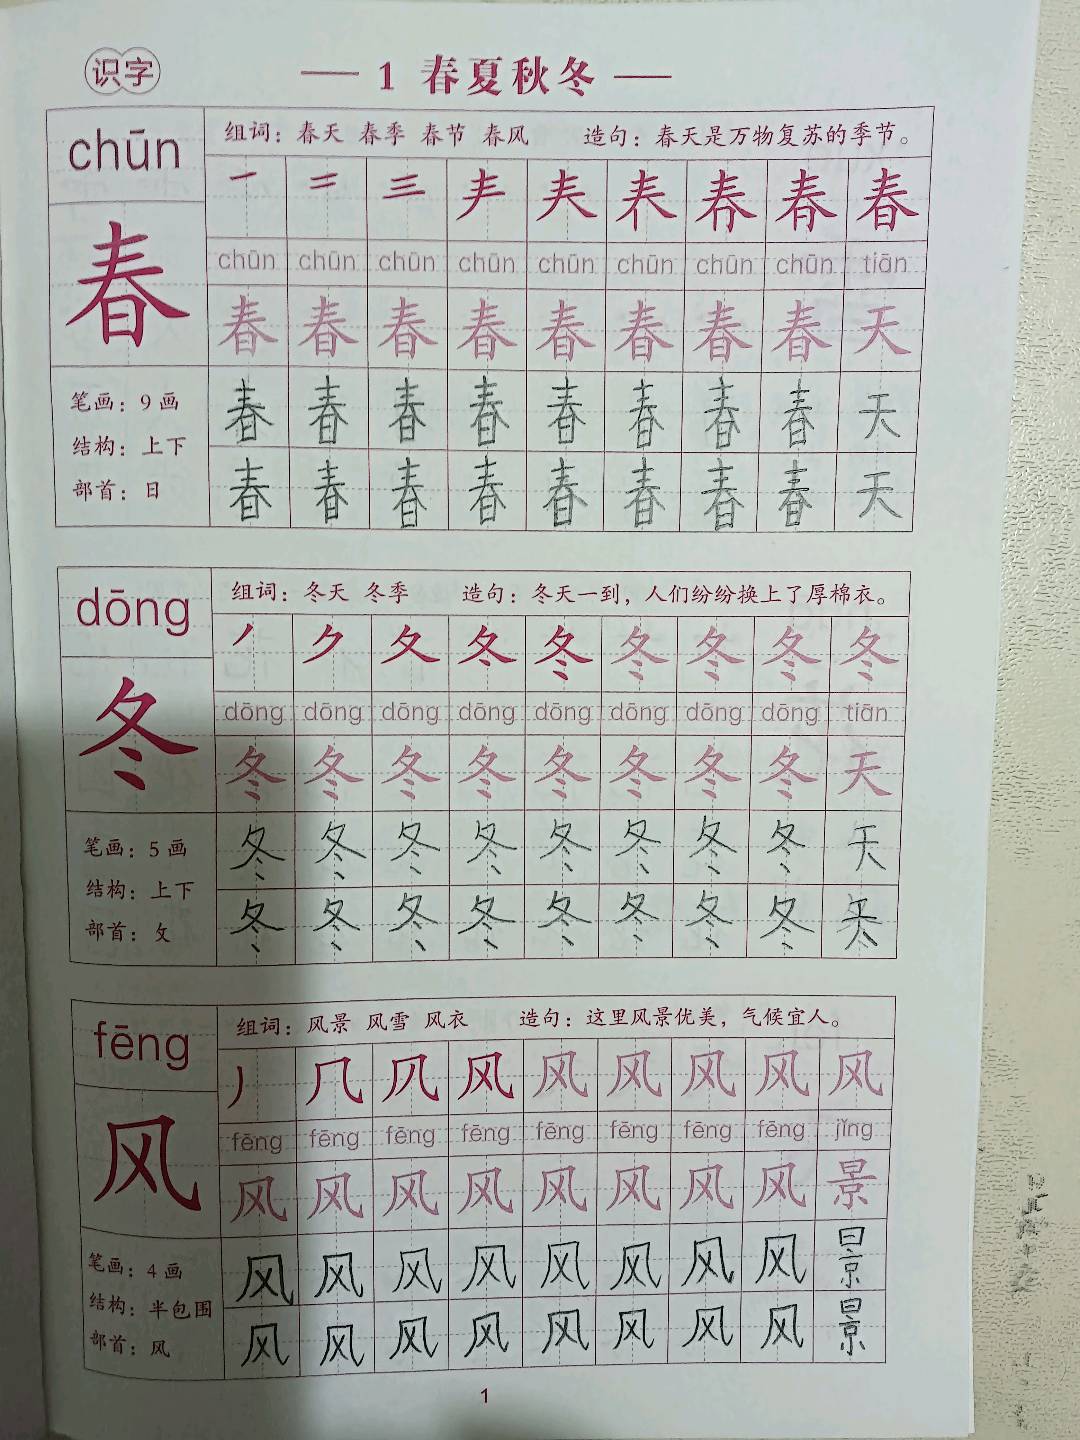 识字
1 春夏秋冬
chūn
组词：春天 春季 春节 春风 造句：春天是万物复苏的季节。
春
chūn chūn chūn chūn chūn chūn chūn chūn tiān
春 春 春 春 春 春 春 春 天
笔画：9 画
结构：上下
部首：日
春 春 春 春 春 春 春 春 天
春 春 春 春 春 春 春 春 天
dōng
组词：冬天 冬季 造句：冬天一到，人们纷纷换上了厚棉衣。
冬
丿 ク 夂 冬 冬 冬 冬 冬
dōng dōng dōng dōng dōng dōng dōng dōng tiān
冬 冬 冬 冬 冬 冬 冬 冬 天
笔画：5 画
结构：上下
部首：夂
冬 冬 冬 冬 冬 冬 冬 冬 天
冬 冬 冬 冬 冬 冬 冬 冬
fēng
组词：风景 风雪 风衣 造句：这里风景优美，气候宜人。
风
丿 几 风 风 风 风 风 风
fēng fēng fēng fēng fēng fēng fēng fēng jǐng
风 风 风 风 风 风 风 风 景
笔画：4 画
结构：半包围
部首：风
风 风 风 风 风 风 风 风 景
风 风 风 风 风 风 风 风 景
1